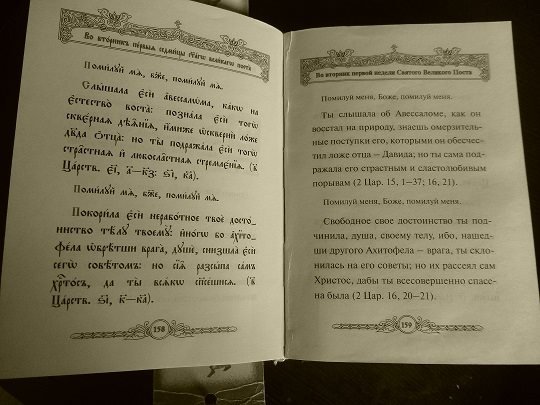 Во вторникъ пе́рвыѧ седми́цы ст҃а́гѡ вели́кагѡ поста̀
Поми́лꙋй мѧ̀, бж҃е, поми́лꙋй мѧ̀.
Слы́шала є҆сѝ а҆вессалѡ́ма, ка́кѡ на
є҆стество̀ воста̀: позна́ла є҆сѝ тогѡ̀
скве́рнаѧ дѣѧ̑нїѧ, и҆́миже ѡ҆сквернѝ ло́же
дв҃да ѻ҆тца̀: но ты̀ подража́ла є҆сѝ тогѡ̀
стра̑стнаѧ и҆ любосла̑стнаѧ стремлє́нїѧ. (в҃
Ца́рств. є҃і, а҃–к҃з: ѕ҃і, к҃а).
Поми́лꙋй мѧ̀, бж҃е, поми́лꙋй мѧ̀.
Покори́ла є҆сѝ нерабо́тное твоѐ досто́-
инство тѣ́лꙋ твоемꙋ̀: и҆но́го бо а҆хїто-
фе́ла ѡ҆брѣ́тши врага̀, дꙋшѐ, снизшла̀ є҆сѝ
сегѡ̀ совѣ́тѡмъ: но сїѧ̑ разсы́па са́мъ
хрⷭ҇то́съ, да ты̀ всѧ́кѡ спⷭ҇е́шисѧ. (в҃
Ца́рств. ѕ҃і, к҃–к҃а).
158
Во вторник первой недели Святого Великого Поста
Помилуй меня, Боже, помилуй меня.
Ты слышала об Авессаломе, как он
восстал на природу, знаешь омерзитель-
ные поступки его, которыми он обесчес-
тил ложе отца – Давида; но ты сама под-
ражала его страстным и сластолюбивым
порывам (2 Цар. 15, 1–37; 16, 21).
Помилуй меня, Боже, помилуй меня.
Свободное свое достоинство ты под-
чинила, душа, своему телу, ибо, нашед-
ши другого Ахитофела – врага, ты скло-
нилась на его советы; но их рассеял сам
Христос, дабы ты всесовершенно спасе-
на была (2 Цар. 16, 20–21).
159